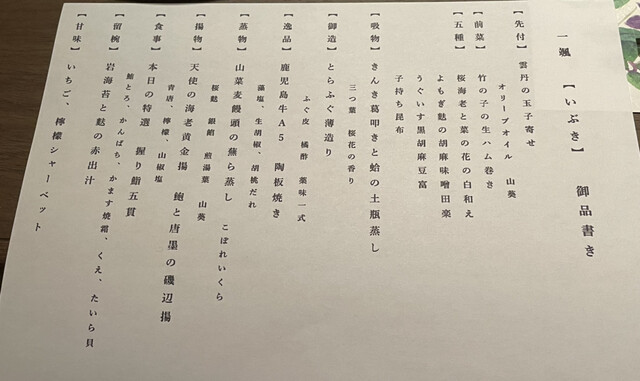 一颯 【いぶき】 御品書き
【先付】 雲丹の玉子寄せ
オリーブオイル 山葵
【前菜】 竹の子の生ハム巻き
【五種】 桜海老と菜の花の白和え
よもぎ麩の胡麻味噌田楽
うぐいす黒胡麻豆富
子持ち昆布
【吸物】 きんき葛叩きと蛤の土瓶蒸し
三つ葉 桜花の香り
【御造】 とらふぐ薄造り
ふぐ皮 橘酢 薬味一式
【逸品】 鹿児島牛A5 陶板焼き
藻塩、生胡椒、胡桃だれ
【蒸物】 山菜麦饅頭の蕪ら蒸し こぼれいくら
桜麩 銀餡 煎湯葉 山葵
【揚物】 天使の海老黄金揚 鮑と唐墨の磯辺揚
青唐、檸檬、山椒塩
【食事】 本日の特選 握り鮨五貫
鮪とろ、かんぱち、かます焼霜、くえ、たいら貝
【留椀】 岩海苔と麩の赤出汁
【甘味】 いちご、檸檬シャーベット